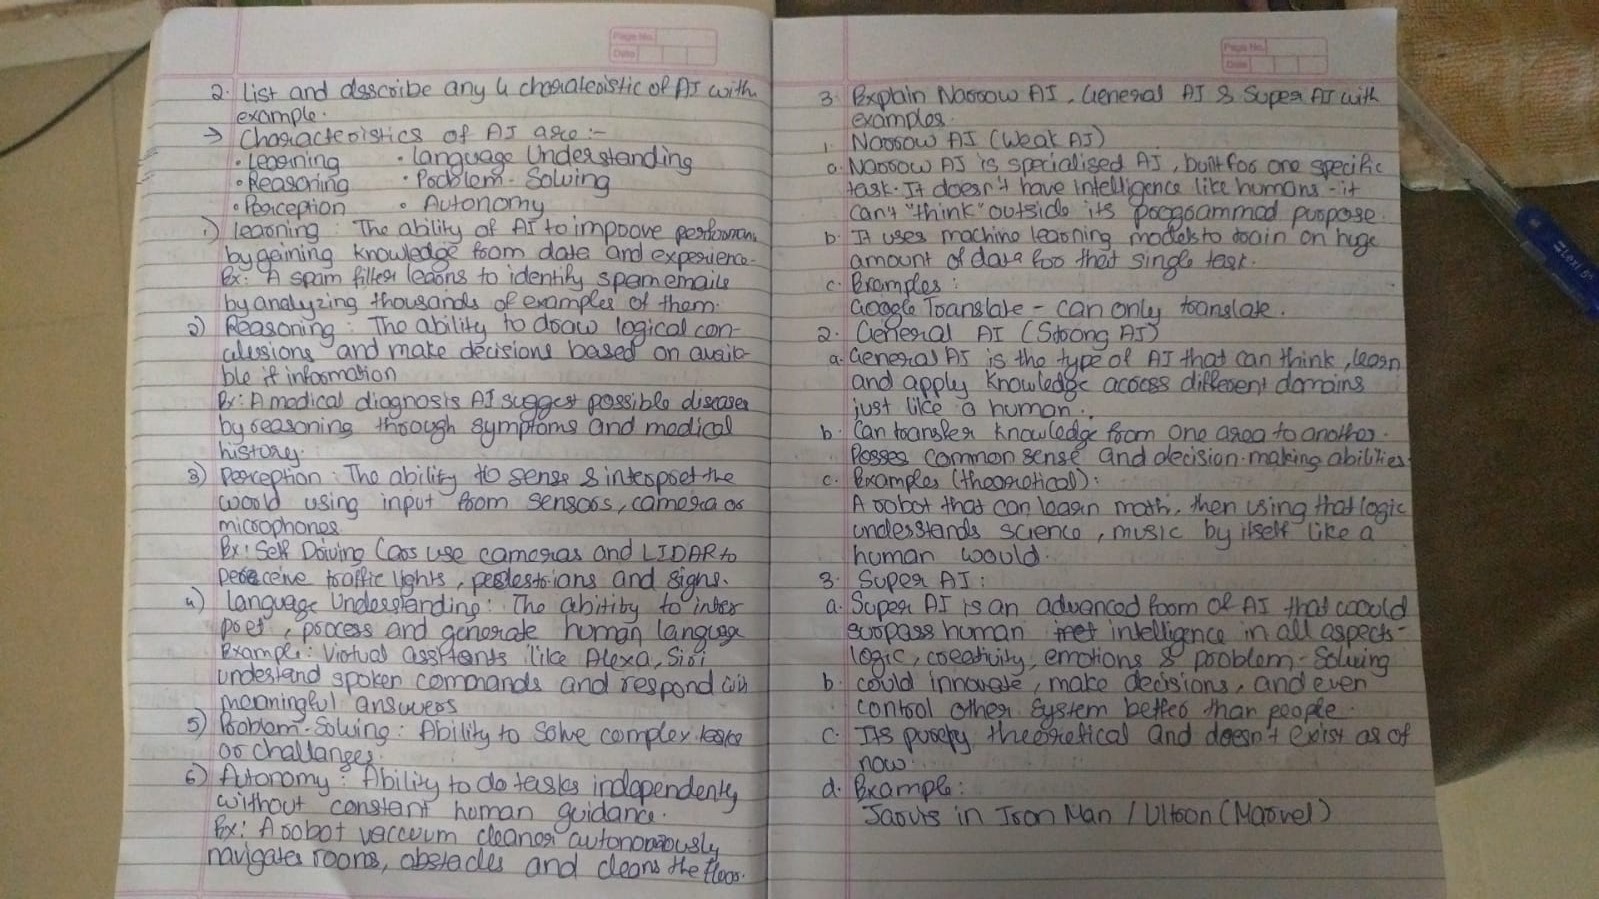 Page No.
Date
2. List and describe any 4 charateristic of AI with
example.
→ Characteristics of AI are :-
• Learning • Language Understanding
• Reasoning • Problem-Solving
• Perception • Autonomy
1) Learning : The ability of AI to improve performan
by gaining knowledge from data and experience.
Ex: A spam filter learns to identify spam emails
by analyzing thousands of examples of them.
2) Reasoning : The ability to draw logical con-
clusions and make decisions based on availa-
ble if information
Ex: A medical diagnosis AI suggest possible diseases
by reasoning through symptoms and medical
history.
3) Perception : The ability to sense & interpret the
world using input from sensors, camera or
microphones
Ex: Self Driving Cars use cameras and LIDAR to
perceive traffic lights, pedestrians and signs.
4) Language Understanding : The abitity to inter
pret, process and generate human language
Example: Virtual assitants like Alexa, Siri
undestand spoken commands and respond with
meaningful answers
5) Problem-Solving : Ability to solve complex tasks
or challanges.
6) Autonomy : Ability to do tasks independently
without constant human guidance.
Ex: A robot vaccuum cleaner autonomously
navigates rooms, obstacles and cleans the floor.
Page No.
Date
3. Explain Narrow AI, General AI & Super AI with
examples.
1. Narrow AI (Weak AI)
a. Narrow AI is specialised AI, built for one specific
task. It doesn't have intelligence like humans - it
can't "think" outside its programmed purpose.
b. It uses machine learning models to train on huge
amount of data for that single task.
c. Examples :
Google Translate - can only translate.
2. General AI (Strong AI)
a. General AI is the type of AI that can think, learn
and apply knowledge across different domains
just like a human.
b. Can transfer knowledge from one area to another.
Posses common sense and decision-making abilities.
c. Examples (theoretical) :
A robot that can learn math, then using that logic
understands science, music by itself like a
human would.
3. Super AI :
a. Super AI is an advanced form of AI that would
surpass human intelligence in all aspects -
logic, creativity, emotions & problem-Solving
b. could innovate, make decisions, and even
control other system better than people.
c. Its purely theoretical and doesn't exist as of
now.
d. Example :
Jarvis in Iron Man / Ultron (Marvel)